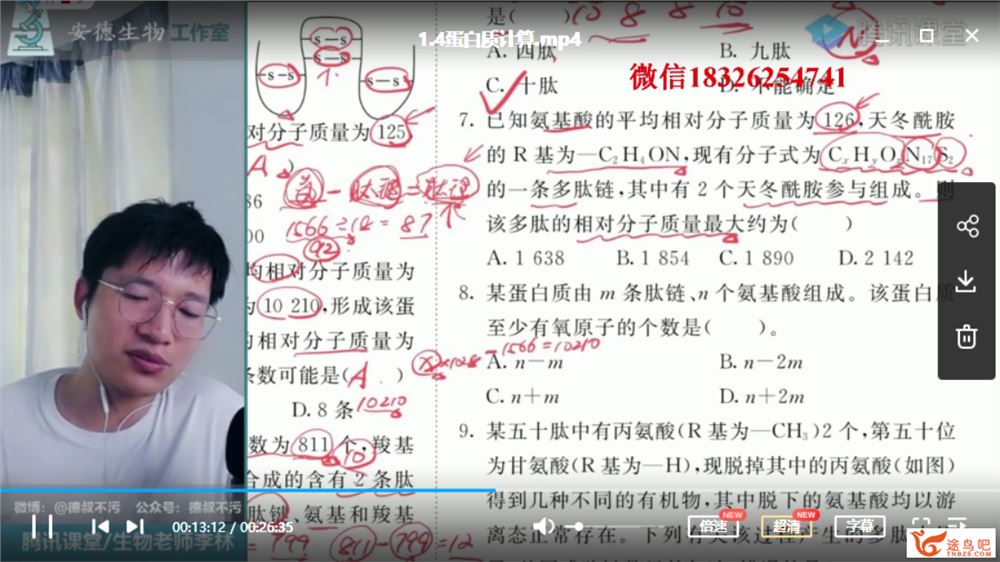 安德生物 工作室
1.4蛋白质计算.mp4
腾讯课堂
s—s
s—s
s—s
s—s
对分子质量为 125
A )
86
氨 - 肽键 = 肽链
1566÷18 = 87
92
00
均相对分子质量为
为 10 210,形成该蛋
的相对分子质量为
条数可能是( A )
D. 8 条 10210
数为 811 个,羧基
10
合成的含有 2 条肽
肽键、氨基和羧基
= 799 (811-799)=12
是( ) 10 8 8 10
A. 四肽
B. 九肽
微信18326254741
C. 十肽
D. 不能确定
7. 已知氨基酸的平均相对分子质量为 126,天冬酰胺
的 R 基为—C₂H₄ON,现有分子式为 CₓHᵧO_zN₁₇S₂
的一条多肽链,其中有 2 个天冬酰胺参与组成。则
该多肽的相对分子质量最大约为( )
A. 1 638 B. 1 854 C. 1 890 D. 2 142
8. 某蛋白质由 m 条肽链、n 个氨基酸组成。该蛋白质
至少有氧原子的个数是( )。
x×128-1566=10210
A. n－m
B. n－2m
C. n＋m
D. n＋2m
9. 某五十肽中有丙氨酸(R 基为—CH₃)2 个,第五十位
为甘氨酸(R 基为—H),现脱掉其中的丙氨酸(如图)
得到几种不同的有机物,其中脱下的氨基酸均以游
离态正常存在。下列有关该过程产生的多肽
微博：@德叔不污 公众号：德叔不污
00:13:12 / 00:26:35
倍速
NEW
超清
NEW
字幕
腾讯课堂/生物老师李林
途鸟吧
TNBZS.COM